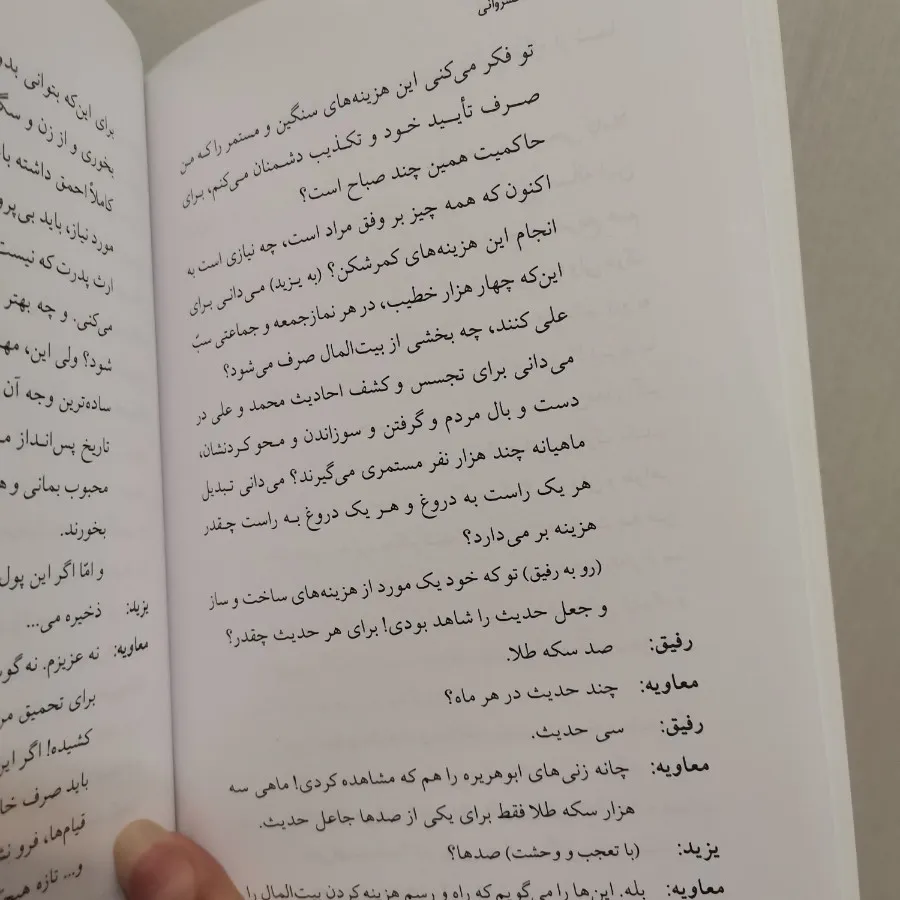 تو فکر می‌کنی این هزینه‌های سنگین و مستمر را که من
صرف تأیید خود و تکذیب دشمنان می‌کنم، برای
حاکمیت همین چند صباح است؟
اکنون که همه چیز بر وفق مراد است، چه نیازی است به
انجام این هزینه‌های کمرشکن؟ (به یزید) می‌دانی برای
این‌که چهار هزار خطیب، در هر نمازجمعه و جماعتی سبّ
علی کنند، چه بخشی از بیت‌المال صرف می‌شود؟
می‌دانی برای تجسس و کشف احادیث محمد و علی در
دست و بال مردم و گرفتن و سوزاندن و محو کردنشان،
ماهیانه چند هزار نفر مستمری می‌گیرند؟ می‌دانی تبدیل
هر یک راست به دروغ و هر یک دروغ به راست چقدر
هزینه بر می‌دارد؟
(رو به رفیق) تو که خود یک مورد از هزینه‌های ساخت و ساز
و جعل حدیث را شاهد بودی! برای هر حدیث چقدر؟
رفیق: صد سکه طلا.
معاویه: چند حدیث در هر ماه؟
رفیق: سی حدیث.
معاویه: چانه زنی‌های ابوهریره را هم که مشاهده کردی! ماهی سه
هزار سکه طلا فقط برای یکی از صدها جاعل حدیث.
یزید: (با تعجب و وحشت) صدها؟
معاویه: بله. این‌ها را می‌گویم که راه و رسم هزینه کردن بیت‌المال را
برای این‌که بتوانی
بخوری و از زن و
کاملاً احمق داشته
مورد نیاز، باید
ارث پدرت که نیست
می‌کنی. و چه بهتر
شود؟ ولی این،
ساده‌ترین وجه آن
تاریخ پس‌انداز
محبوب بمانی و
بخورند.
و امّا اگر این پول
یزید: ذخیره می...
معاویه: نه عزیزم. نه
برای تحمیق
کشیده! اگر
باید صرف
قیام‌ها، فرو
و... تازه